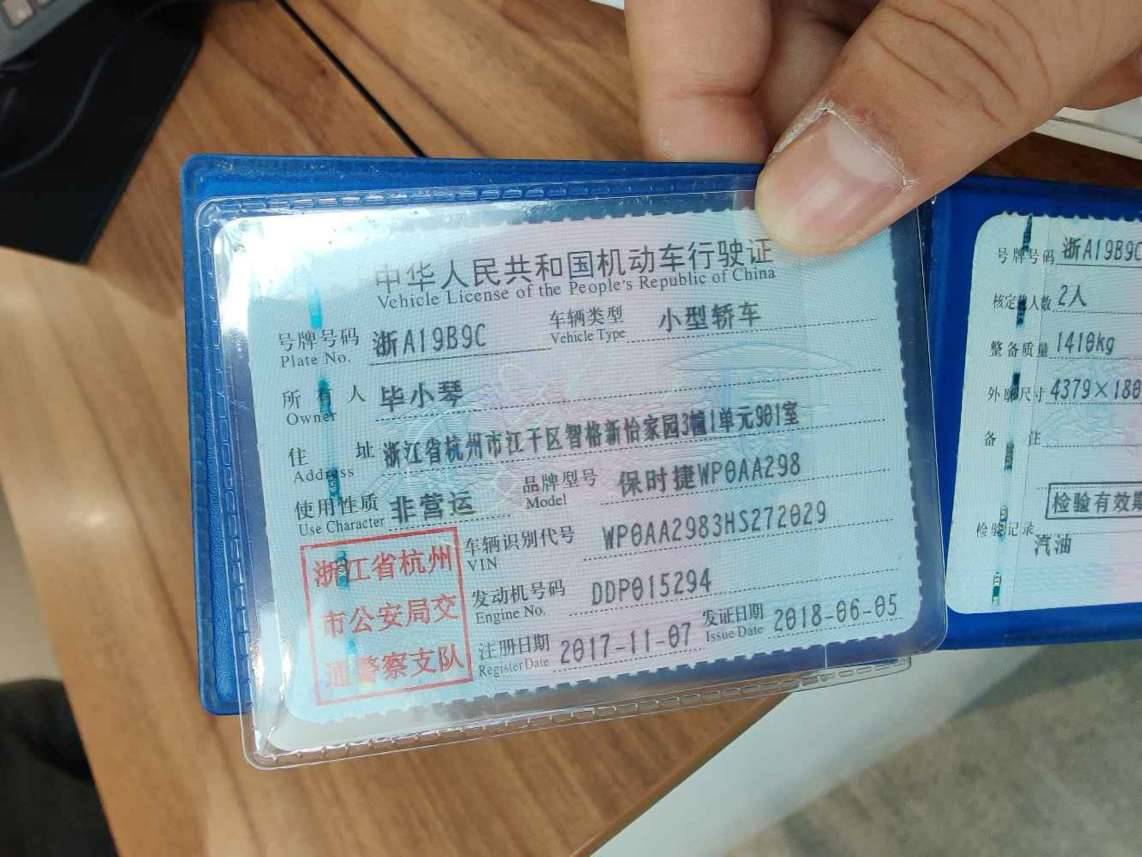 中华人民共和国机动车行驶证
Vehicle License of the People's Republic of China
号牌号码 浙A19B9C 车辆类型 小型轿车
Plate No. Vehicle Type
所有人 毕小琴
Owner
住址 浙江省杭州市江干区智格新怡家园3幢1单元901室
Address
使用性质 非营运 品牌型号 保时捷WP0AA298
Use Character Model
浙江省杭州
市公安局交
通警察支队
车辆识别代号 WP0AA2983HS272029
VIN
发动机号码 DDP015294
Engine No.
注册日期 2017-11-07 发证日期 2018-06-05
Register Date Issue Date
号牌号码 浙A19B9C
核定载人数 2人
整备质量 1410kg
外廓尺寸 4379×180
备注
检验有效期
检验记录
汽油